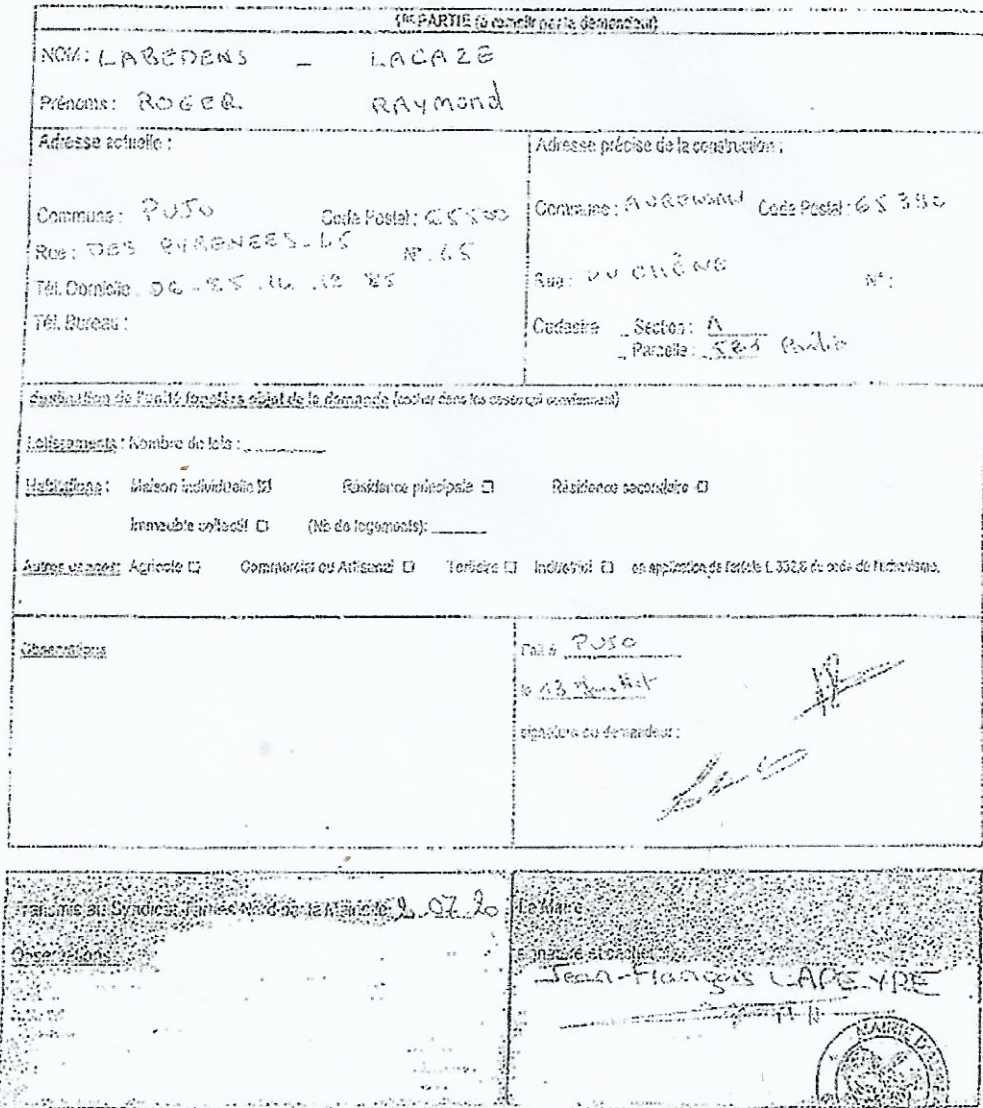 1ère PARTIE (à remplir par le demandeur)
NOM: LABEDENS - LACAZE
Prénoms: ROGER RAYMOND
Adresse actuelle :
Commune : PUJO Code Postal : 65500
Rue : DES PYRENEES N°
Tél. Domicile
Tél. Bureau :
Adresse précise de la construction :
Commune : Code Postal :
Rue : DU CHÊNE N° :
Cadastre - Section : A
- Parcelle :
destination de l'unité foncière objet de la demande (cocher dans les cases qui conviennent)
Lotissements : Nombre de lots :
Habitations : Maison individuelle ☒ Résidence principale ☐ Résidence secondaire ☐
Immeuble collectif ☐ (Nb de logements):
Autres usages: Agricole ☐ Commercial ou Artisanal ☐ Tertiaire ☐ Industriel ☐ en application de l'article L 332,8 du code de l'urbanisme.
Observations
Fait à PUJO
le 13 Juillet
signature du demandeur :
Transmis au Syndicat Tarbes Nord par la Mairie le 07_20
Observations :
Le Maire
Signature et cachet
Jean-François LAPEYRE
MAIRIE